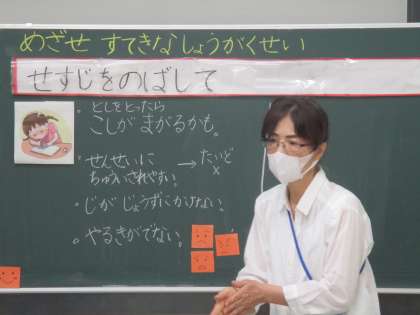 めざせ すてきなしょうがくせい
せすじをのばして
・としをとったら
こしが まがるかも。
・せんせいに → たいど
ちゅういされやすい。 ×
・じが じょうずにかけない。
・やるきがでない。